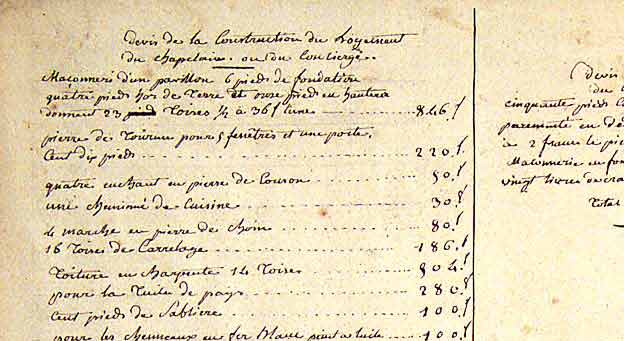 devis de la Construction du Logement
du chapelain. ou du Concierge..
Maçonneri d'un pavillon 6 pieds de fondation
quâtre pieds hors de Terre et onze pieds en hauteur
donnent 23 pied Toises ½ à 36ᶠ l'une 846ᶠ
pierre de Tournus pour 5 fenêtres et une porte.
Cent dix pieds 220ᶠ
quatre en haut en pierre de Couzon 50ᶠ
une cheminé de Cuisine 30ᶠ
4 marche en pierre de Choin 80ᶠ
16 Toises de Carrelage 186ᶠ
Toiture en Charpente 14 Toises 504ᶠ
pour la Tuile de pays 280ᶠ
Cent pieds de Sabliere 100ᶠ
pour les Chenneaux en fer blanc 100ᶠ
devis
du
cinquante pieds
en
a 2 francs le pie
Maçonnerie en fon
vingt
Total